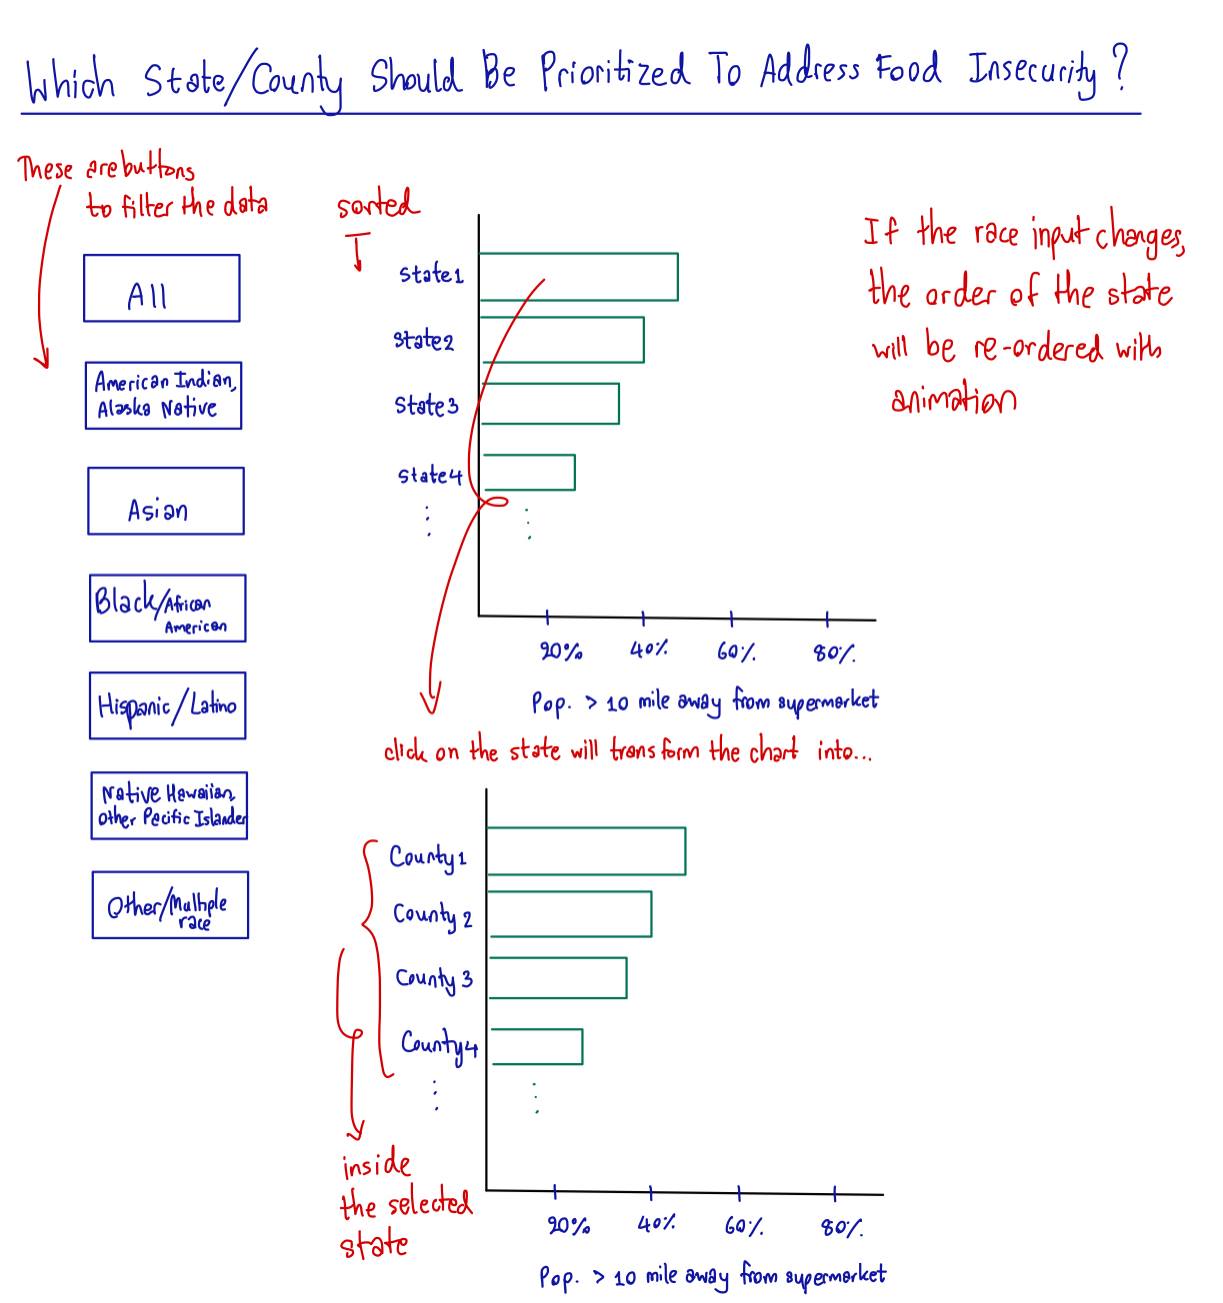 Which State/County Should Be Prioritized To Address Food Insecurity?
These are buttons
to filter the data
All
American Indian,
Alaska Native
Asian
Black/African
American
Hispanic/Latino
Native Hawaiian
Other Pacific Islander
Other/Multiple
race
sorted
State1
State2
State3
State4
20% 40% 60% 80%
Pop. > 10 mile away from supermarket
If the race input changes,
the order of the state
will be re-ordered with
animation
click on the state will transform the chart into...
County1
County 2
County 3
County4
20% 40% 60% 80%
Pop. > 10 mile away from supermarket
inside
the selected
state